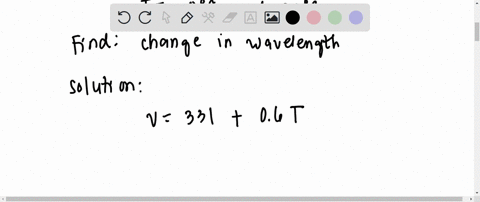 Find: change in wavelength
Solution:
v = 331 + 0.6 T